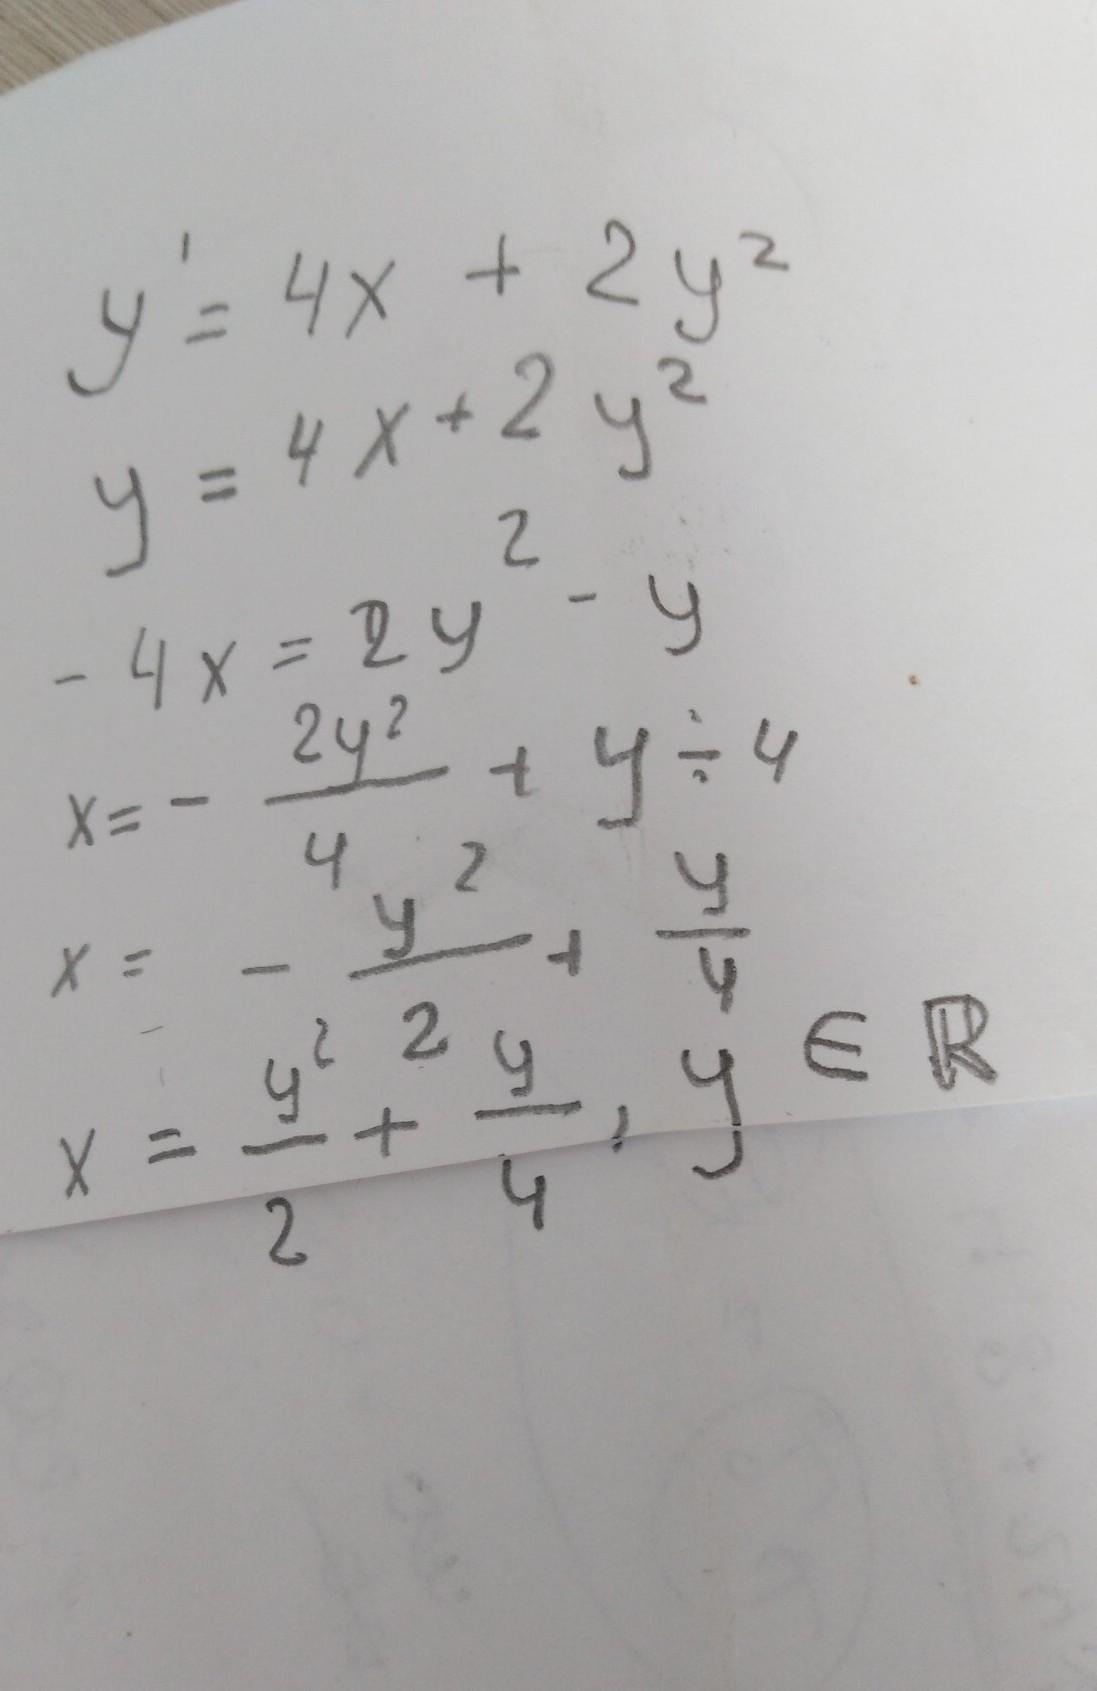 y' = 4x + 2y²
y = 4x + 2y²
- 4x = 2y² - y
x = - 2y²/4 + y ÷ 4
x = - y²/2 + y/4
x = y²/2 + y/4 , y ∈ ℝ